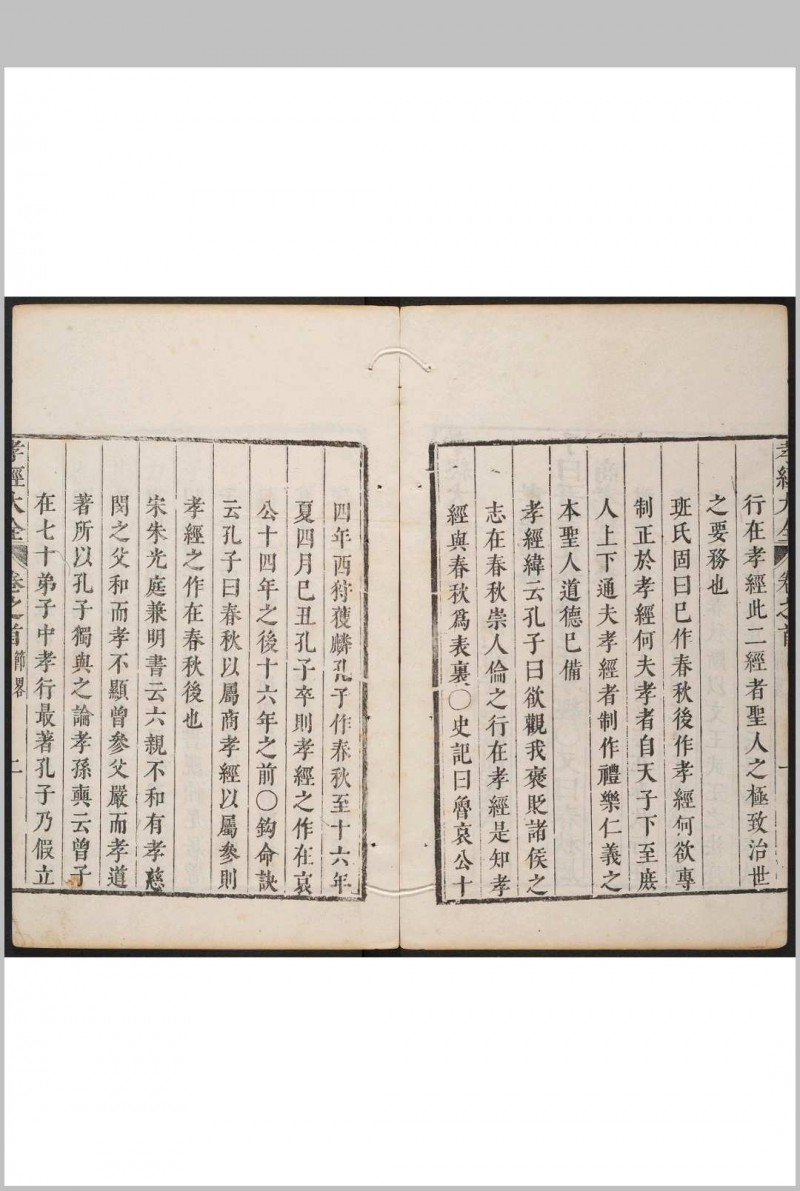 行在孝經此二經者聖人之極致治世
之要務也
班氏固曰已作春秋後作孝經何欲專
制正於孝經何夫孝者自天子下至庶
人上下通夫孝經者制作禮樂仁義之
本聖人道德已備
孝經緯云孔子曰欲觀我褒貶諸侯之
志在春秋崇人倫之行在孝經是知孝
經與春秋爲表裏○史記曰魯哀公十
四年西狩獲麟孔子作春秋至十六年
夏四月巳丑孔子卒則孝經之作在哀
公十四年之後十六年之前○鈎命訣
云孔子曰春秋以屬商孝經以屬參則
孝經之作在春秋後也
宋朱光庭兼明書云六親不和有孝慈
閔之父和而孝不顯曾參父嚴而孝道
著所以孔子獨與之論孝孫奭云曾子
在七十弟子中孝行最著孔子乃假立
孝經大全 卷之首 節畧 二
孝經大全 卷之首 一